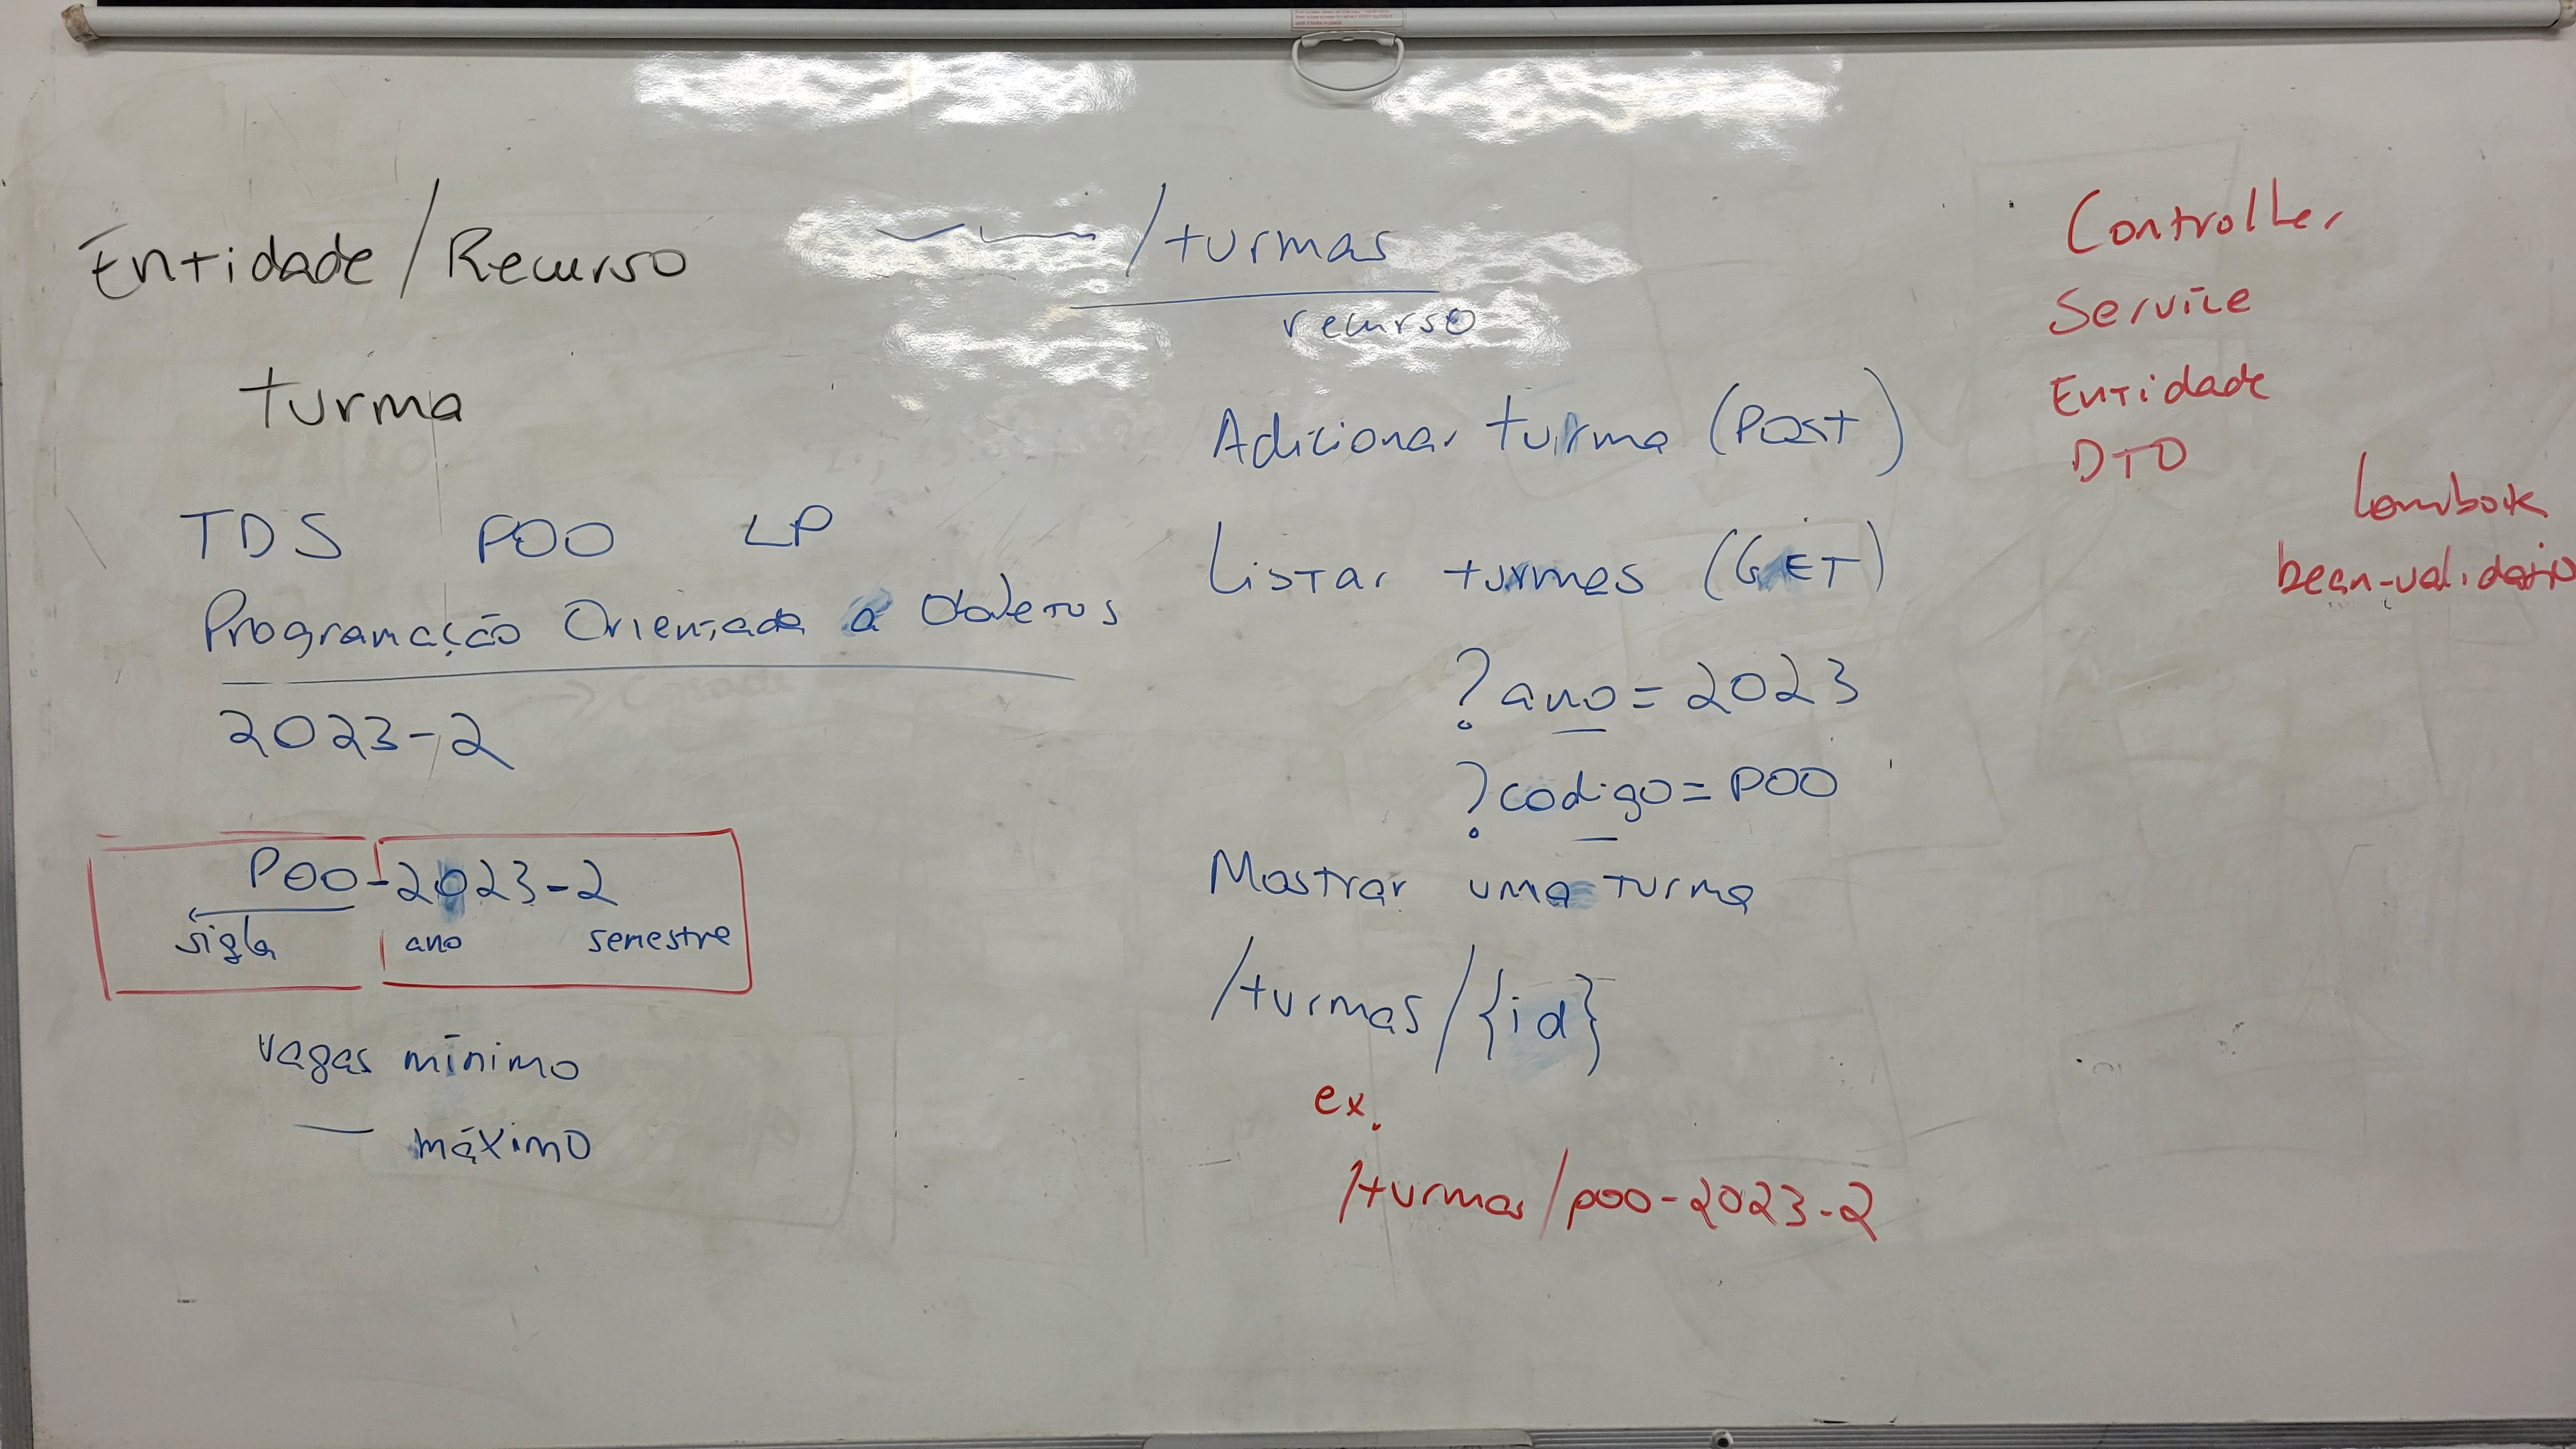 Entidade / Recurso
turma
TDS POO LP
Programação Orientada a Objetos
2023-2
POO-2023-2
sigla ano semestre
vagas mínimo
— máximo
/turmas
recurso
Adicionar turma (POST)
Listar turmas (GET)
?ano=2023
?código=POO
Mostrar uma turma
/turmas/{id}
ex.
/turmas/poo-2023-2
Controller
Service
Entidade
DTO
Lombok
bean-validatio